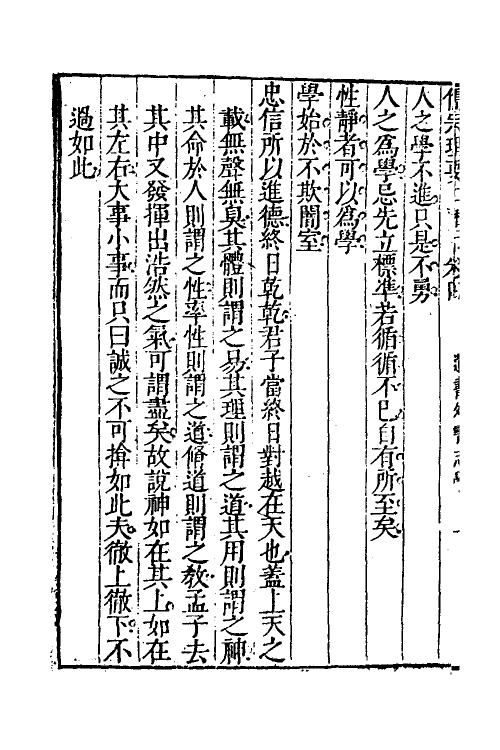 人之學不進只是不勇
人之為學忌先立標準若循循不已自有所至矣
性靜者可以為學
學始於不欺闇室
忠信所以進德終日乾乾君子當終日對越在天也蓋上天之
載無聲無臭其體則謂之易其理則謂之道其用則謂之神
其命於人則謂之性率性則謂之道脩道則謂之教孟子去
其中又發揮出浩然之氣可謂盡矣故說神如在其上如在
其左右大事小事而只曰誠之不可揜如此夫徹上徹下不
過如此